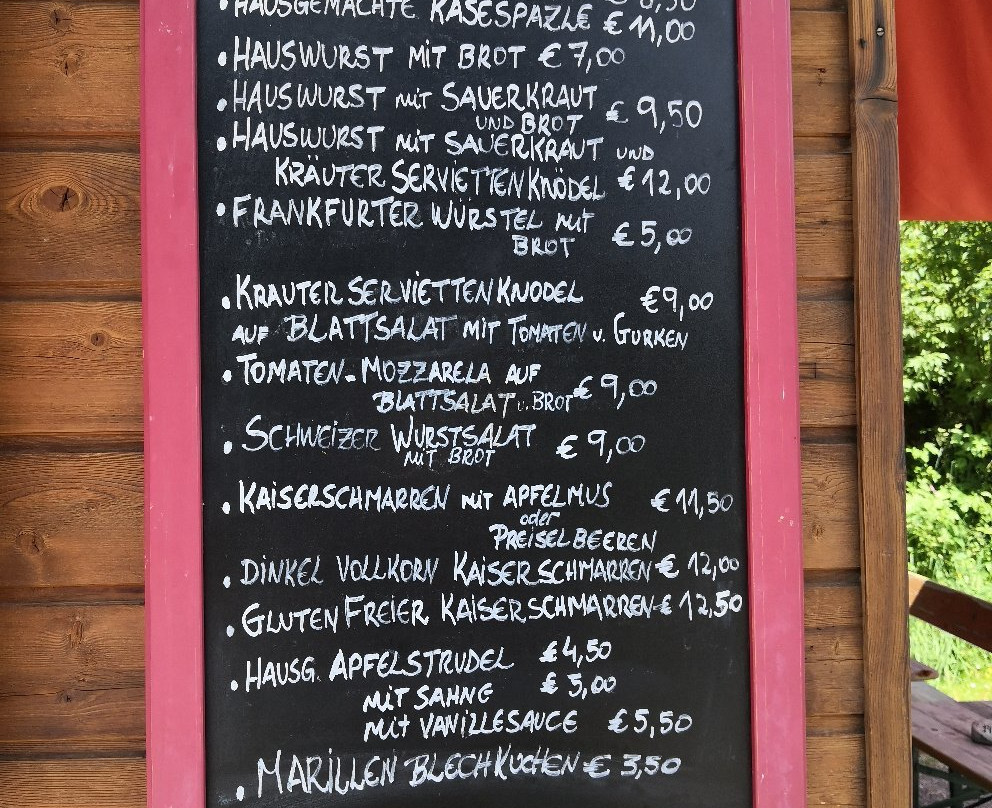 • HAUSGEMACHTE KASESPAZLE € 11,00
• HAUSWURST MIT BROT € 7,00
• HAUSWURST mit SAUERKRAUT
UND BROT € 9,50
• HAUSWURST mit SAUERKRAUT UND
KRÄUTER SERVIETTENKNÖDEL € 12,00
• FRANKFURTER WÜRSTEL mit
BROT € 5,00
• KRAUTER SERVIETTENKNODEL € 9,00
AUF BLATTSALAT MIT TOMATEN u. GURKEN
• TOMATEN-MOZZARELA AUF
BLATTSALAT u. BROT € 9,00
• SCHWEIZER WURSTSALAT € 9,00
MIT BROT
• KAISERSCHMARREN mit APFELMUS € 11,50
oder
PREISELBEEREN
• DINKEL VOLLKORN KAISERSCHMARREN € 12,00
• GLUTENFREIER KAISERSCHMARREN € 12,50
• HAUSG. APFELSTRUDEL € 4,50
MIT SAHNE € 5,00
MIT VANILLESAUCE € 5,50
• MARILLEN BLECHKUCHEN € 3,50